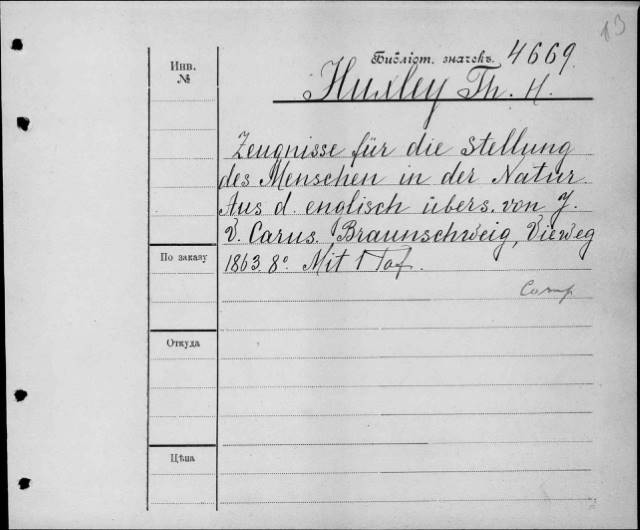 13
Библіот. значекъ. 4669.
Инв.
№
Huxley Th. H.
Zeugnisse für die Stellung
des Menschen in der Natur.
Aus d. englisch übers. von J.
V. Carus. Braunschweig, Vieweg
По заказу
1863. 8º. Mit 1 Taf.
Откуда
Цѣна